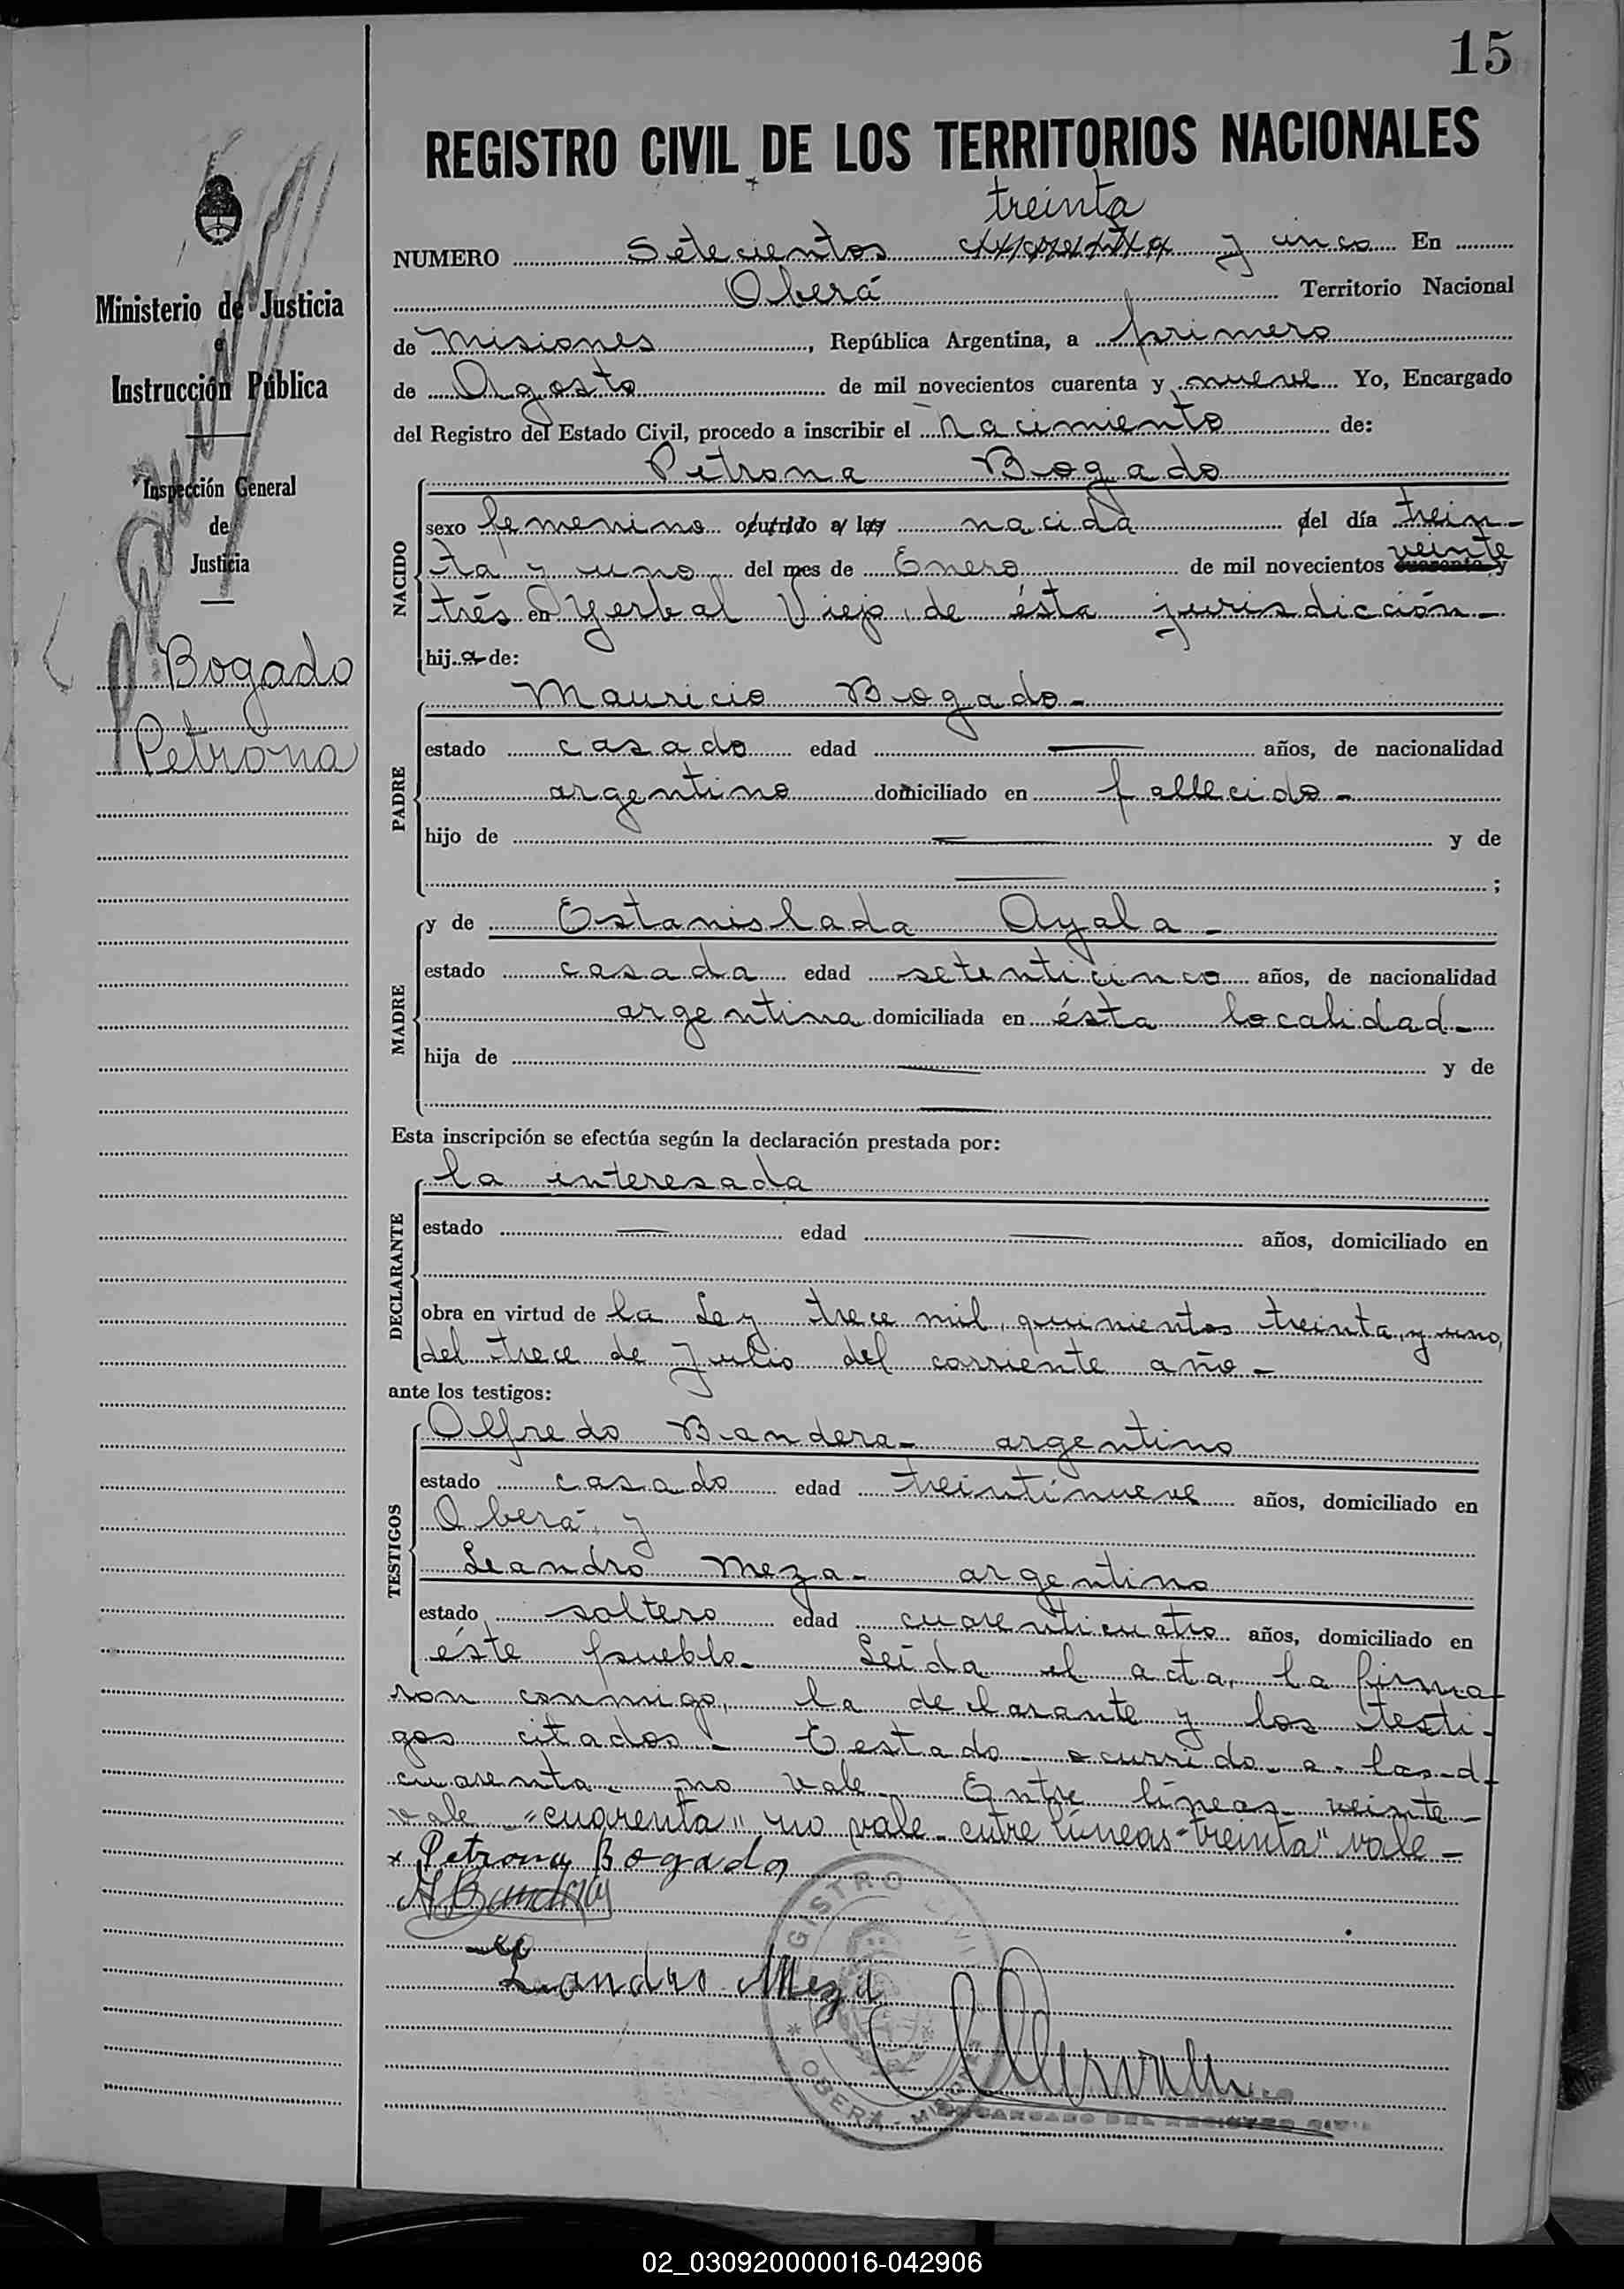 15
REGISTRO CIVIL DE LOS TERRITORIOS NACIONALES
treinta
NUMERO Setecientos cuarenta y cinco En
Oberá Territorio Nacional
de Misiones, República Argentina, a primero
de Agosto de mil novecientos cuarenta y nueve Yo, Encargado
del Registro del Estado Civil, procedo a inscribir el Nacimiento de:
Petrona Bogado
NACIDO
sexo femenino ocurrido a las nacida del día trein-
veinte
ta y uno del mes de Enero de mil novecientos cuarenta y
trés en Yerbal Viejo, de ésta jurisdicción-
hija de:
Mauricio Bogado-
PADRE
estado casado edad años, de nacionalidad
argentino domiciliado en fallecido-
hijo de y de
;
y de Estanislada Ayala-
MADRE
estado casada edad setenticinco años, de nacionalidad
argentina domiciliada en ésta localidad-
hija de y de
Esta inscripción se efectúa según la declaración prestada por:
la interesada
DECLARANTE
estado edad años, domiciliado en
obra en virtud de la Ley trece mil, quinientos treinta y uno,
del trece de Julio del corriente año-
ante los testigos:
Alfredo Bandera- argentino
TESTIGOS
estado casado edad treintinueve años, domiciliado en
Oberá, y
Leandro Meza- argentino
estado soltero edad cuarenticuatro años, domiciliado en
éste pueblo- Leída el acta, la firma-
ron conmigo, la declarante y los testi-
gos citados- Testado- ocurrido- a- las-d-
cuarenta- no vale- Entre líneas- veinte-
vale- "cuarenta" no vale- entre líneas-"treinta" vale-
x Petrona Bogado
A Bandera
Leandro Meza
REGISTRO CIVIL
* OBERÁ - MISIONES
ENCARGADO DEL REGISTRO CIVIL
Ministerio de Justicia
e
Instrucción Pública
Inspección General
de
Justicia
Bogado
Petrona
02_030920000016-042906